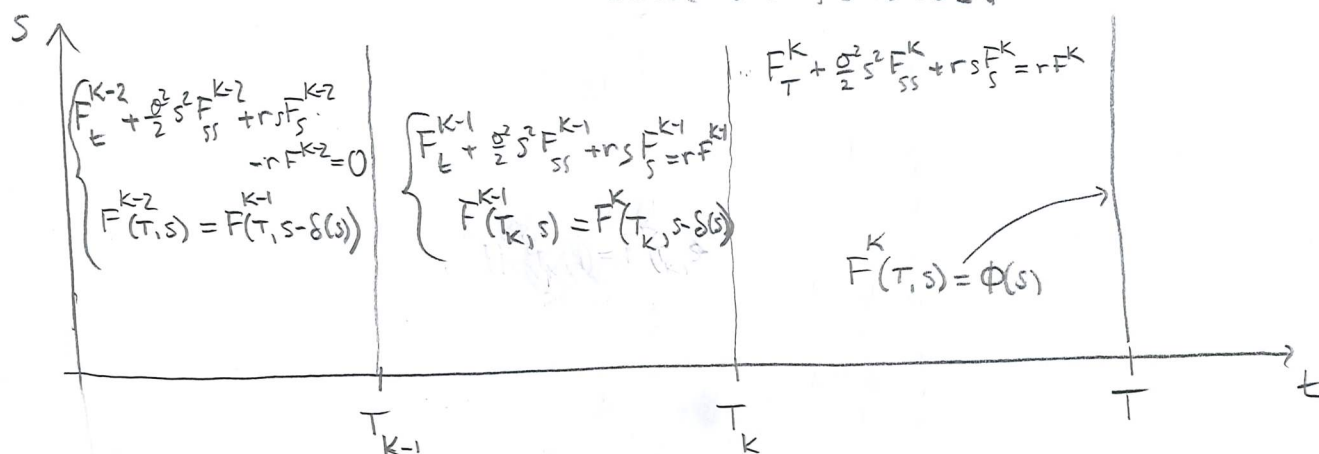 S
F_t^{K-2} + \frac{σ^2}{2} s^2 F_{ss}^{K-2} + rsF_s^{K-2}
-rF^{K-2} = 0
F^{K-2}(T,s) = F^{K-1}(T, s-δ(s))
F_t^{K-1} + \frac{σ^2}{2} s^2 F_{ss}^{K-1} + rs F_s^{K-1} = rF^{K-1}
F^{K-1}(T_K, s) = F^K(T_K, s-δ(s))
F_T^K + \frac{σ^2}{2} s^2 F_{ss}^K + rs F_s^K = rF^K
F^K(T,s) = Φ(s)
T_{K-1}
T_K
T
t